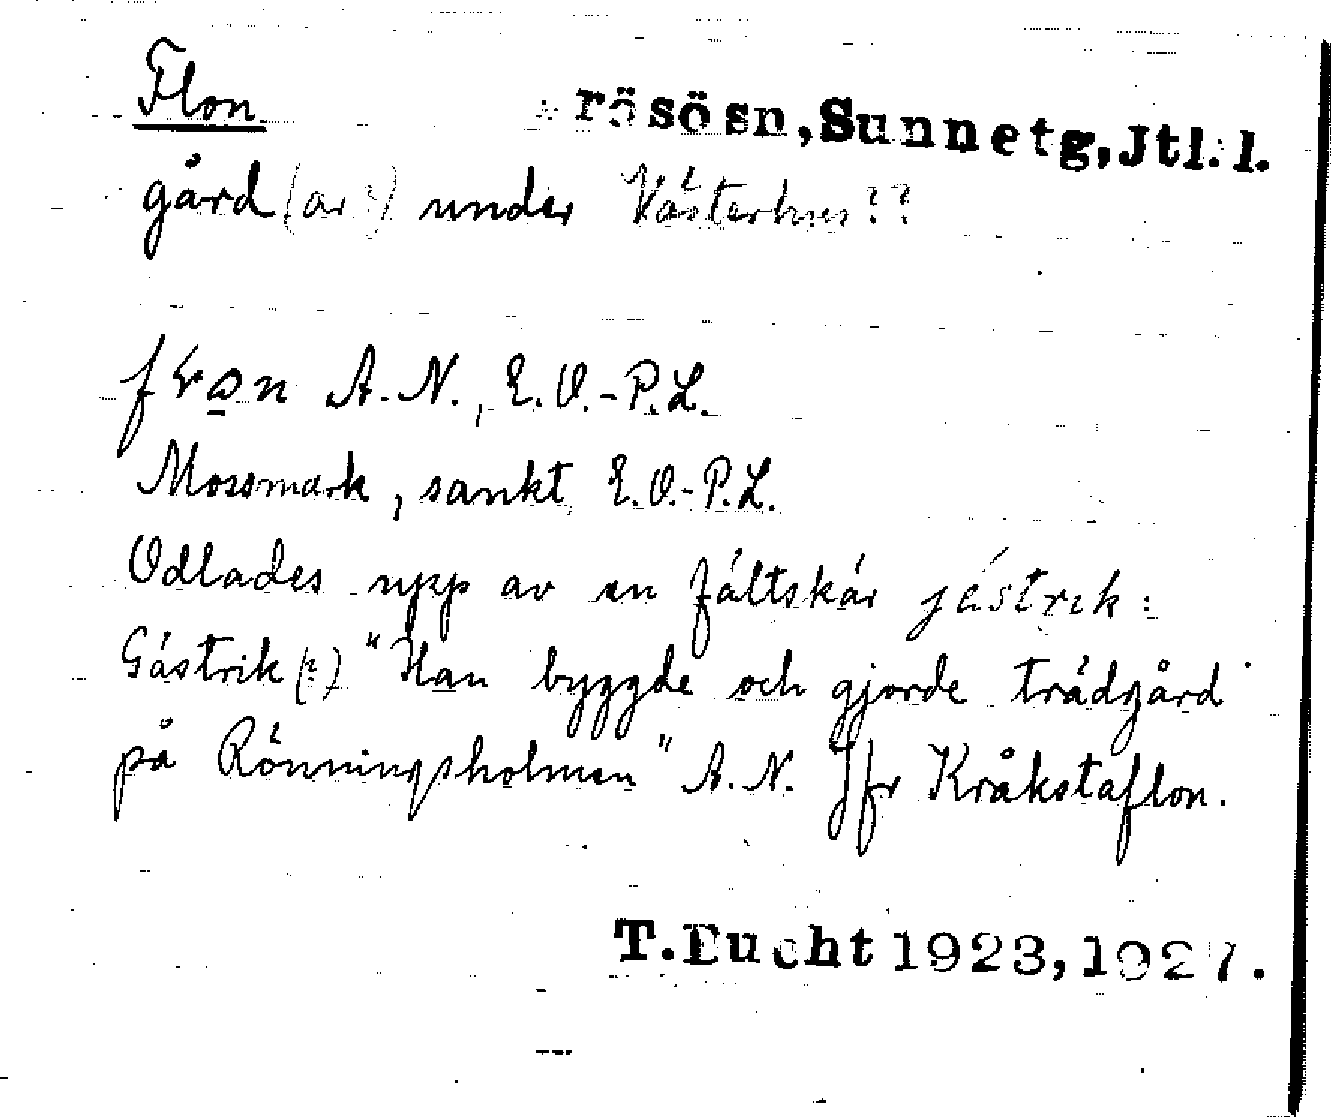 Flon
rösösn, Sunnetg, Jtl. l.
gård (ar?) under Västerhus??
fron A.N., E.O.-P.L.
Mossmark, sankt E.O.-P.L.
Odlades upp av en fältskär jästrik:
Gästrik(?) "Han byggde och gjorde trädgård
på Rönningsholmen" A.N. Jfr Kråkstaflon.
T. Bucht 1923, 1927.